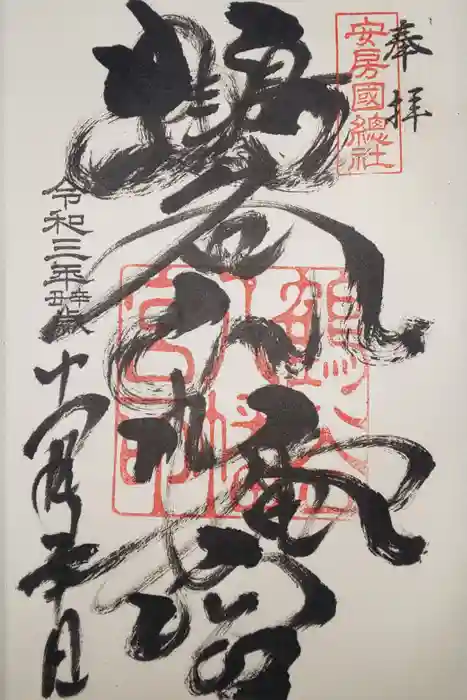 奉拝
安房國總社
鶴谷八幡宮
鶴谷八幡宮印
令和三年辛丑歳